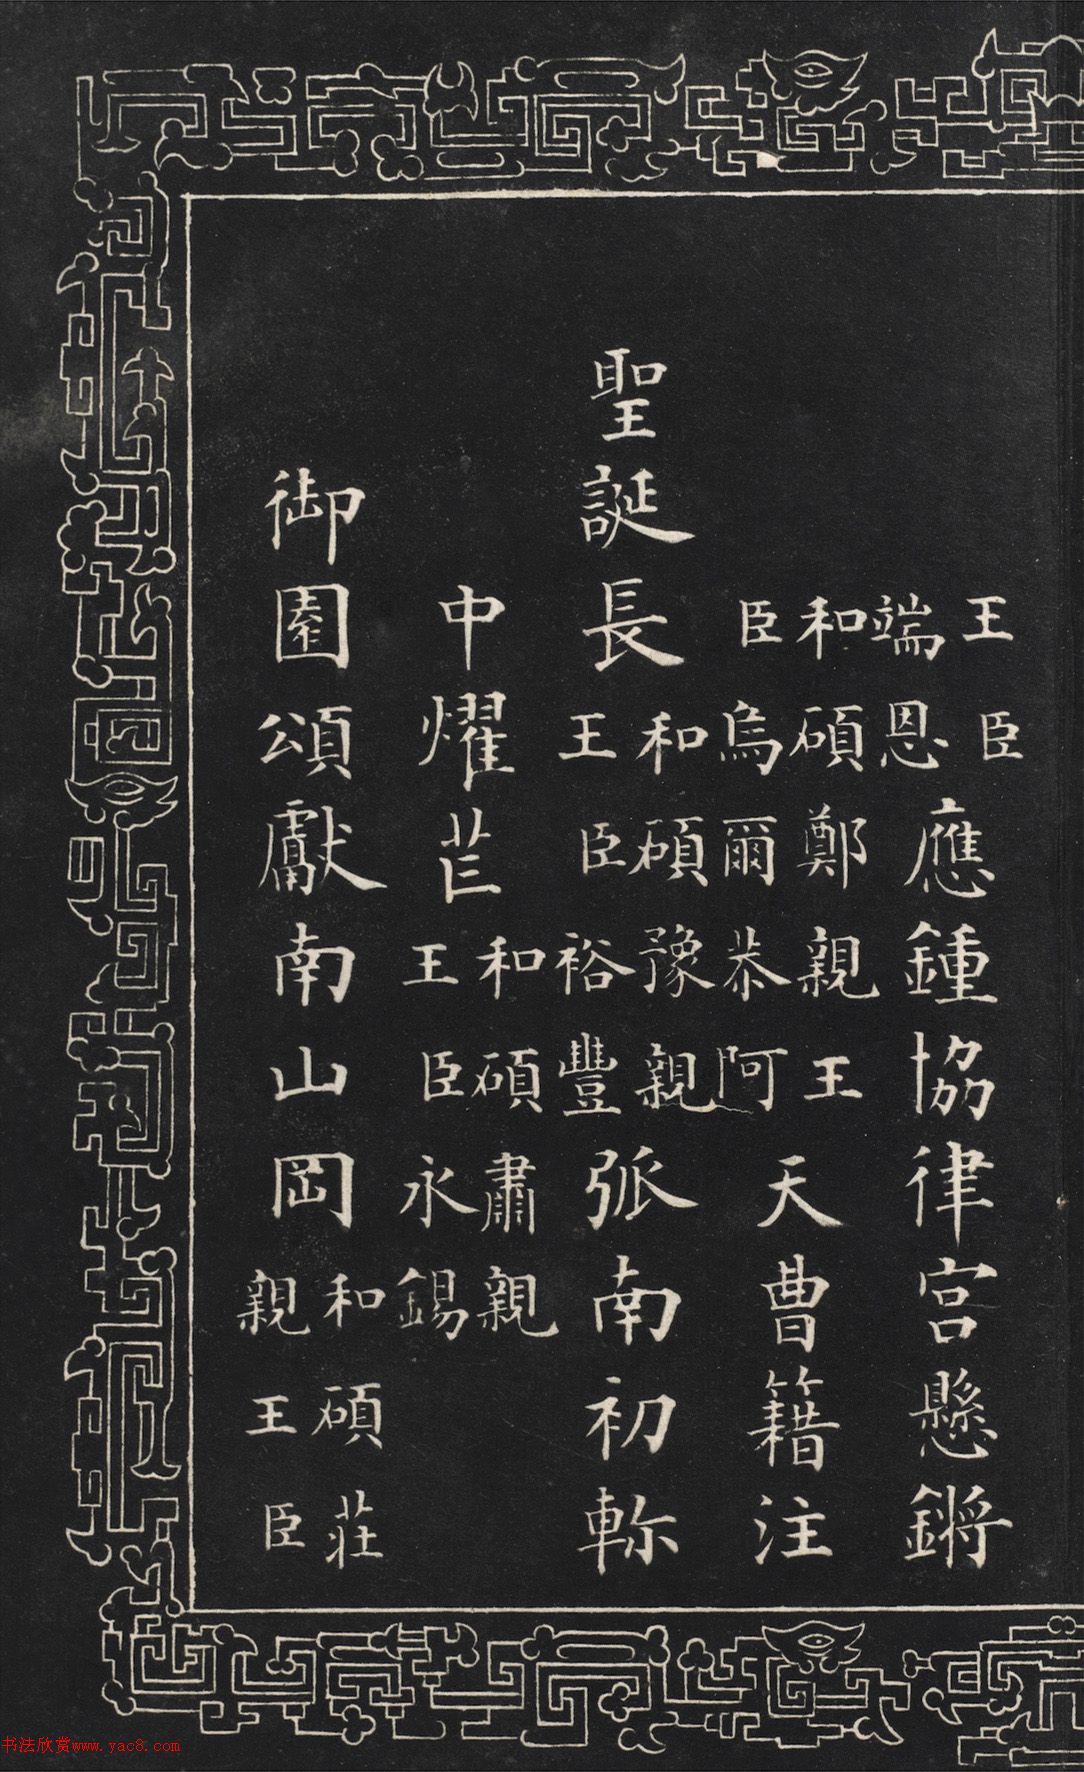 王臣
端恩
應鍾協律宮懸鏘
和碩鄭親王
臣烏爾恭阿
天曹籍注
聖誕長
和碩豫親
王臣裕豐
弧南初軫
中燿芒
和碩肅親
王臣永錫
御園頌獻南山岡
和碩莊
親王臣
书法欣赏www.yac8.com